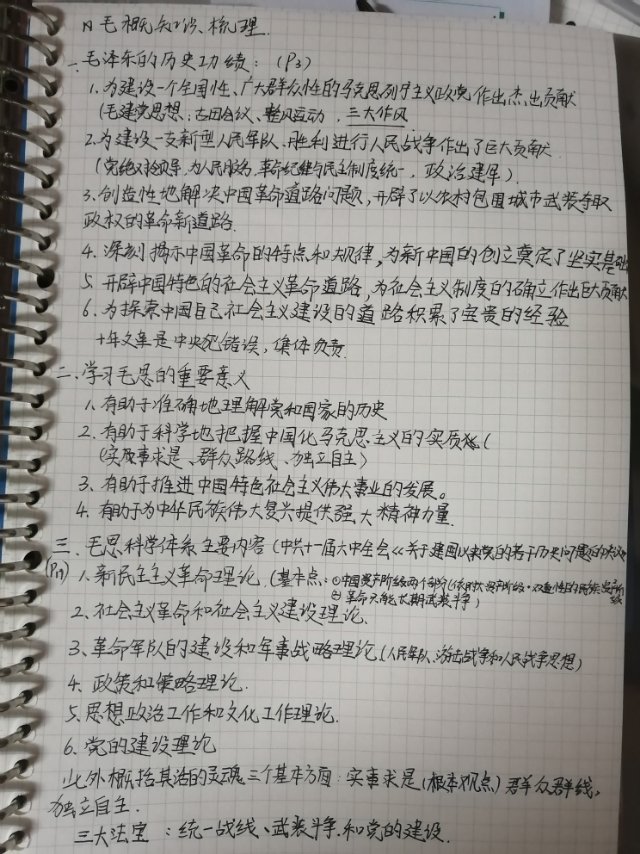 毛概知识梳理
一、毛泽东的历史功绩：（P3）
1.为建设一个全国性、广大群众性的马克思列宁主义政党作出杰出贡献
（毛建党思想：古田会议、整风运动、三大作风
2.为建设一支新型人民军队、胜利进行人民战争作出了巨大贡献
（党绝对领导，为人民服务，革命纪律与民主制度统一，政治建军）
3.创造性地解决中国革命道路问题，开辟了以农村包围城市武装夺取
政权的革命新道路
4.深刻揭示中国革命的特点和规律，为新中国的创立奠定了坚实基础
5.开辟中国特色的社会主义革命道路，为社会主义制度的确立作出巨大贡献
6.为探索中国自己社会主义建设的道路积累了宝贵的经验
十年文革是中央犯错误，集体负责
二、学习毛思的重要意义
1.有助于准确地理解党和国家的历史
2.有助于科学地把握中国化马克思主义的实质（
（实质事求是、群众路线、独立自主）
3.有助于推进中国特色社会主义伟大事业的发展。
4.有助于为中华民族伟大复兴提供强大精神力量.
三.毛思科学体系主要内容（中共十一届六中全会《关于建国以来党的若干历史问题的决议》
1.新民主主义革命理论.（基本点：①中国资产阶级两个部分（依附大资产阶级·双重性的民族资产阶级
②革命只能长期武装斗争）
2.社会主义革命和社会主义建设理论.
3.革命军队的建设和军事战略理论（人民军队、游击战争和人民战争思想）
4.政策和策略理论.
5.思想政治工作和文化工作理论.
6.党的建设理论
此外概括其活的灵魂三个基本方面：实事求是（根本观点）群众群线，
独立自主.
三大法宝：统一战线、武装斗争.和党的建设.